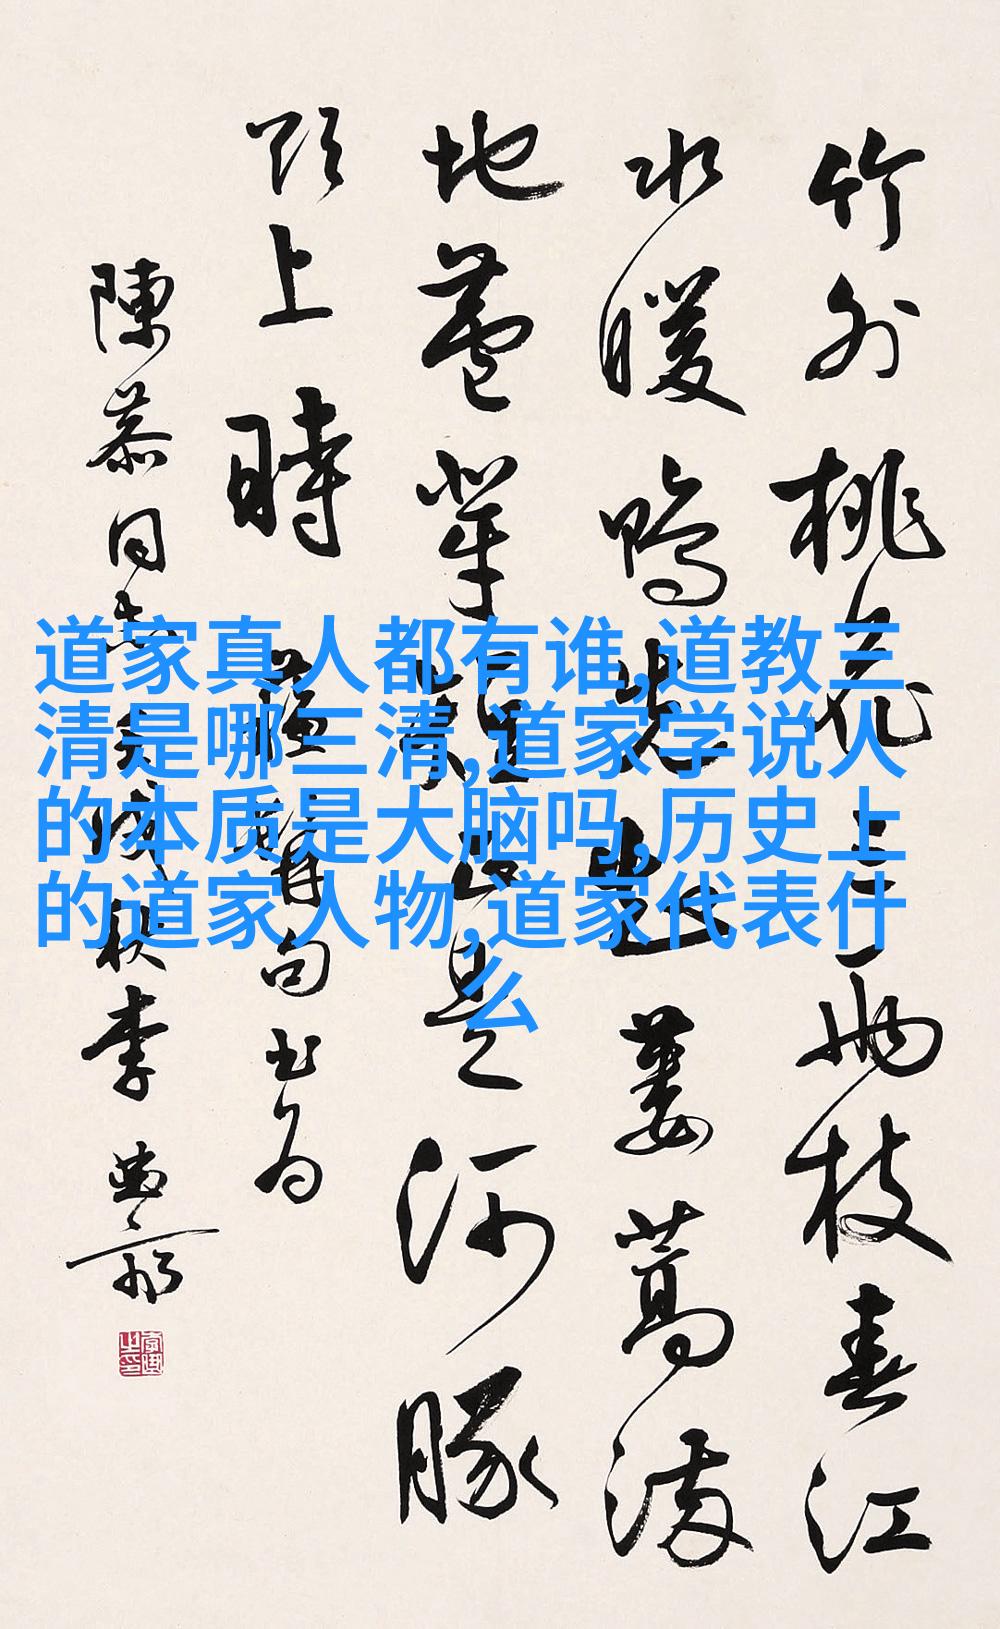 竹外桃花三兩枝春江
水暖鴨先蔞蒿滿
地蘆芽短正是河豚
欲上時 句书为
陳同志李
道家真人都有谁,道教三
清是哪三清,道家学说人
的本质是大脑吗,历史上
的道家人物,道家代表什
么